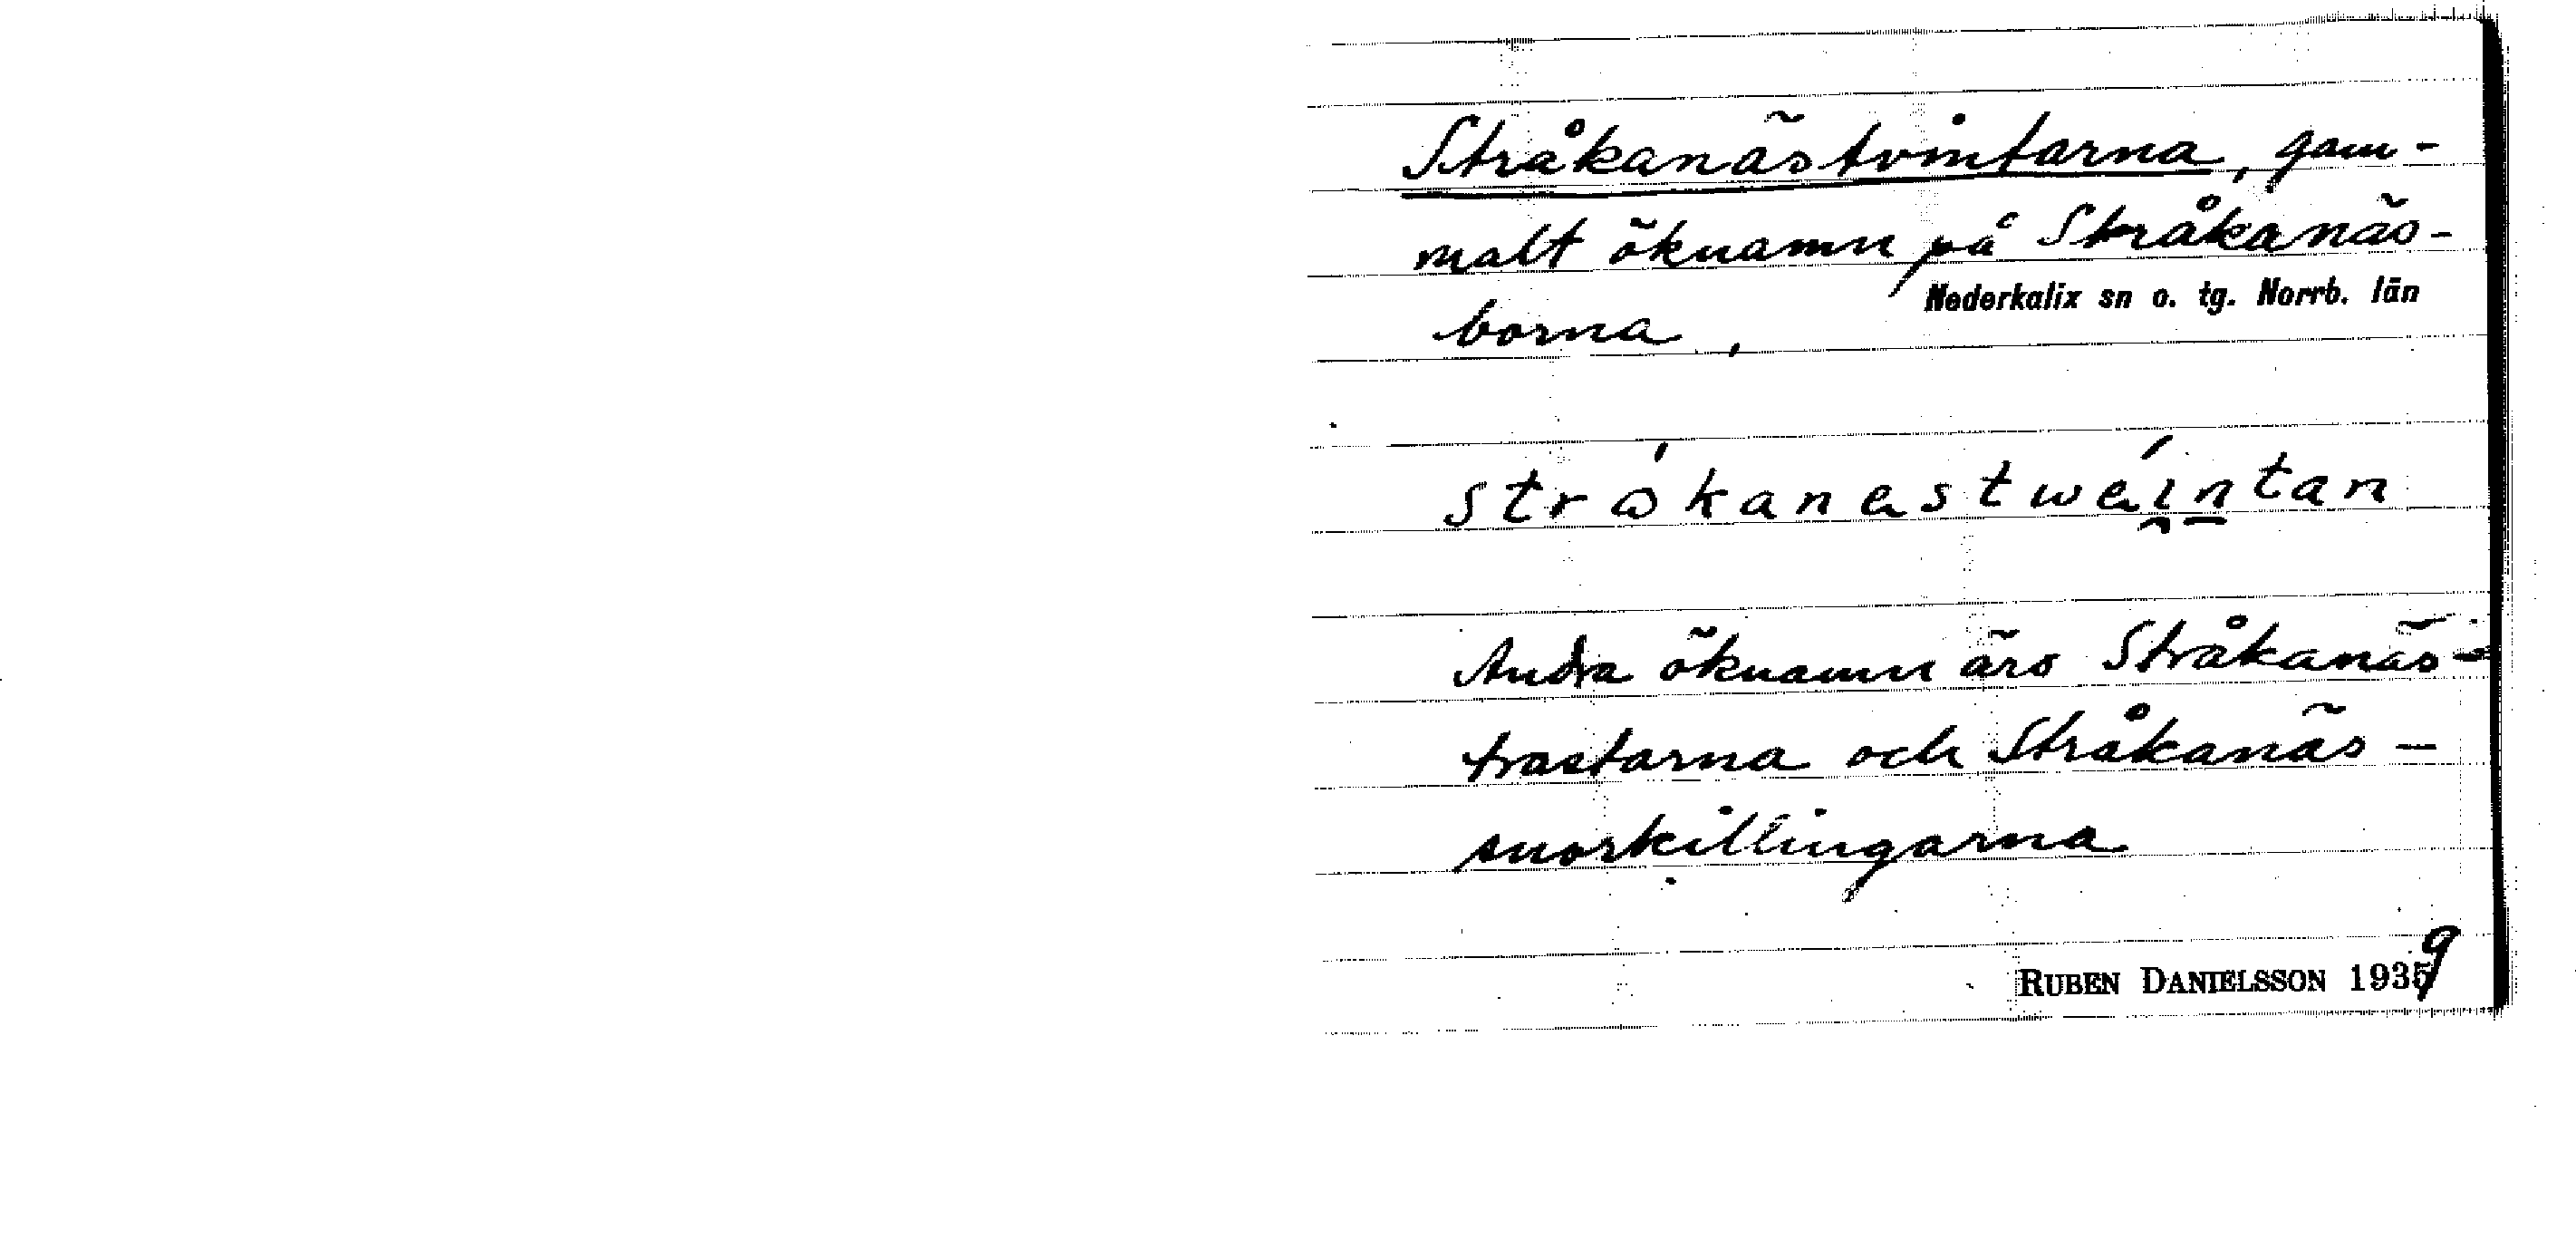 Stråkanästvintarna, gam-
malt öknamn på Stråkanäs-
Nederkalix sn o. tg. Norrb. län
borna,
stråkanestweintan
Andra öknamn äro Stråkanäs-
trastarna och Stråkanäs-
snorkillingarna
RUBEN DANIELSSON 1939